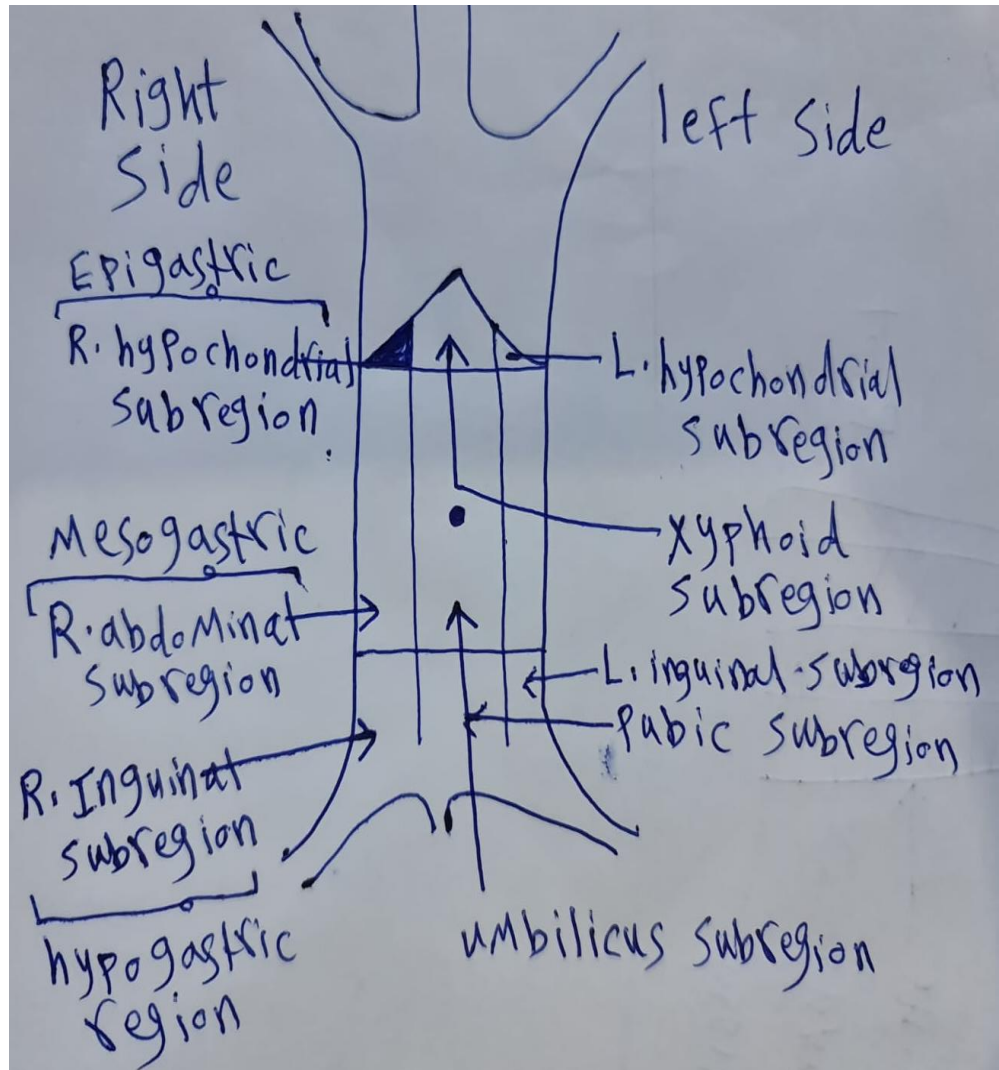 Right
Side
left Side
Epigastric
R. hypochondrial
subregion
L. hypochondrial
subregion
Mesogastric
R. abdominal
subregion
xyphoid
subregion
L. inguinal subregion
Pubic subregion
R. Inguinal
subregion
hypogastric
region
umbilicus subregion